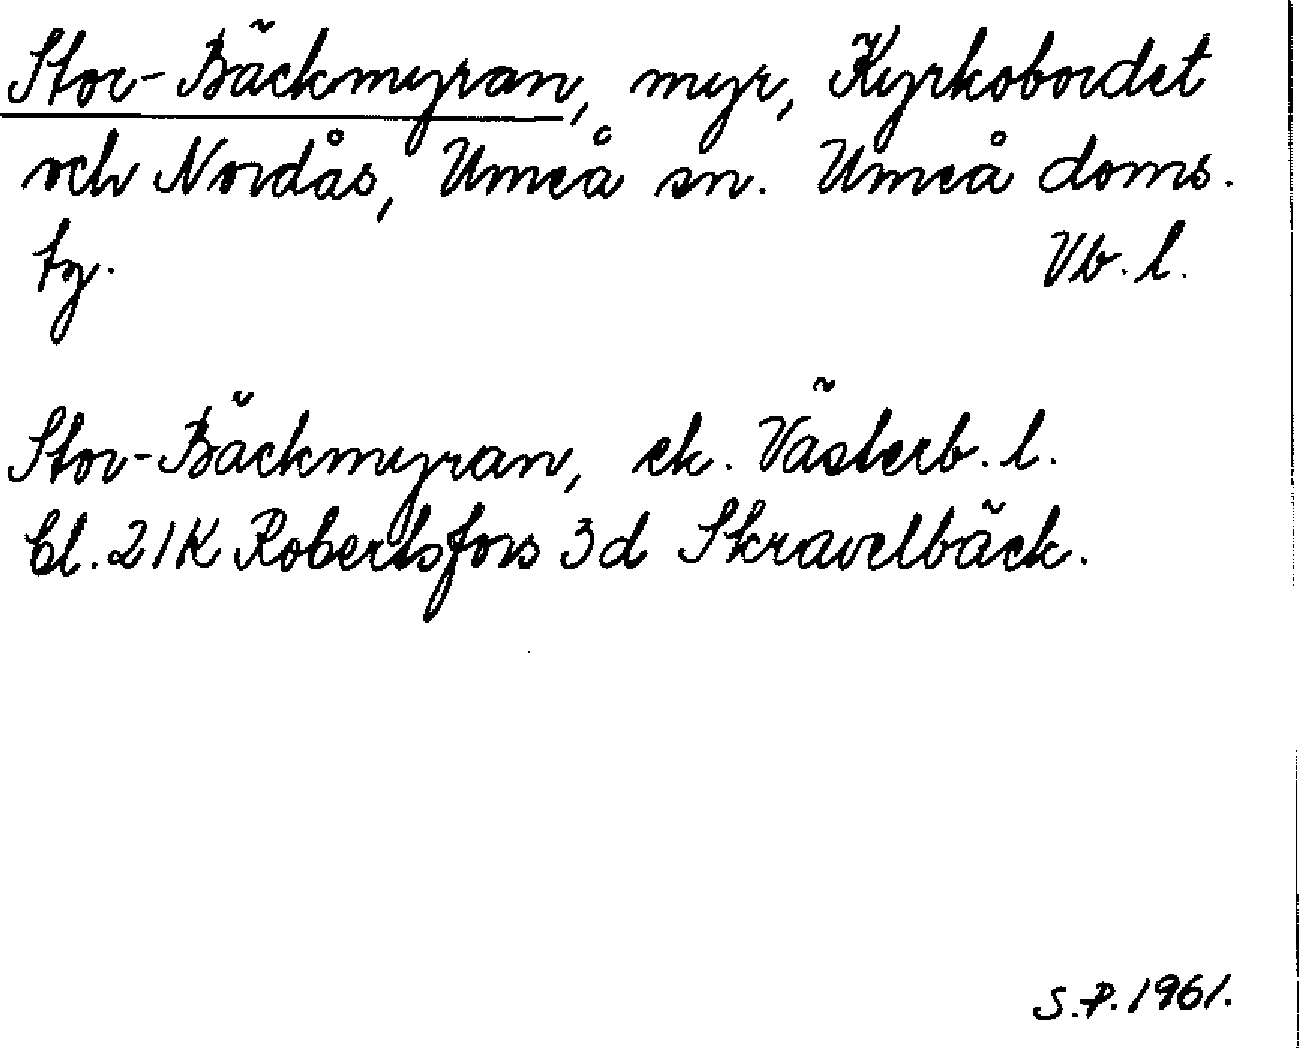 Stor-Bäckmyran, myr, Kyrkobordet
och Nordås, Umeå sn. Umeå doms.
tg. Vb. l.
Stor-Bäckmyran, ek. Västerb. l.
Bl. 21K Robertsfors 3d Skravelbäck.
S.P. 1961.